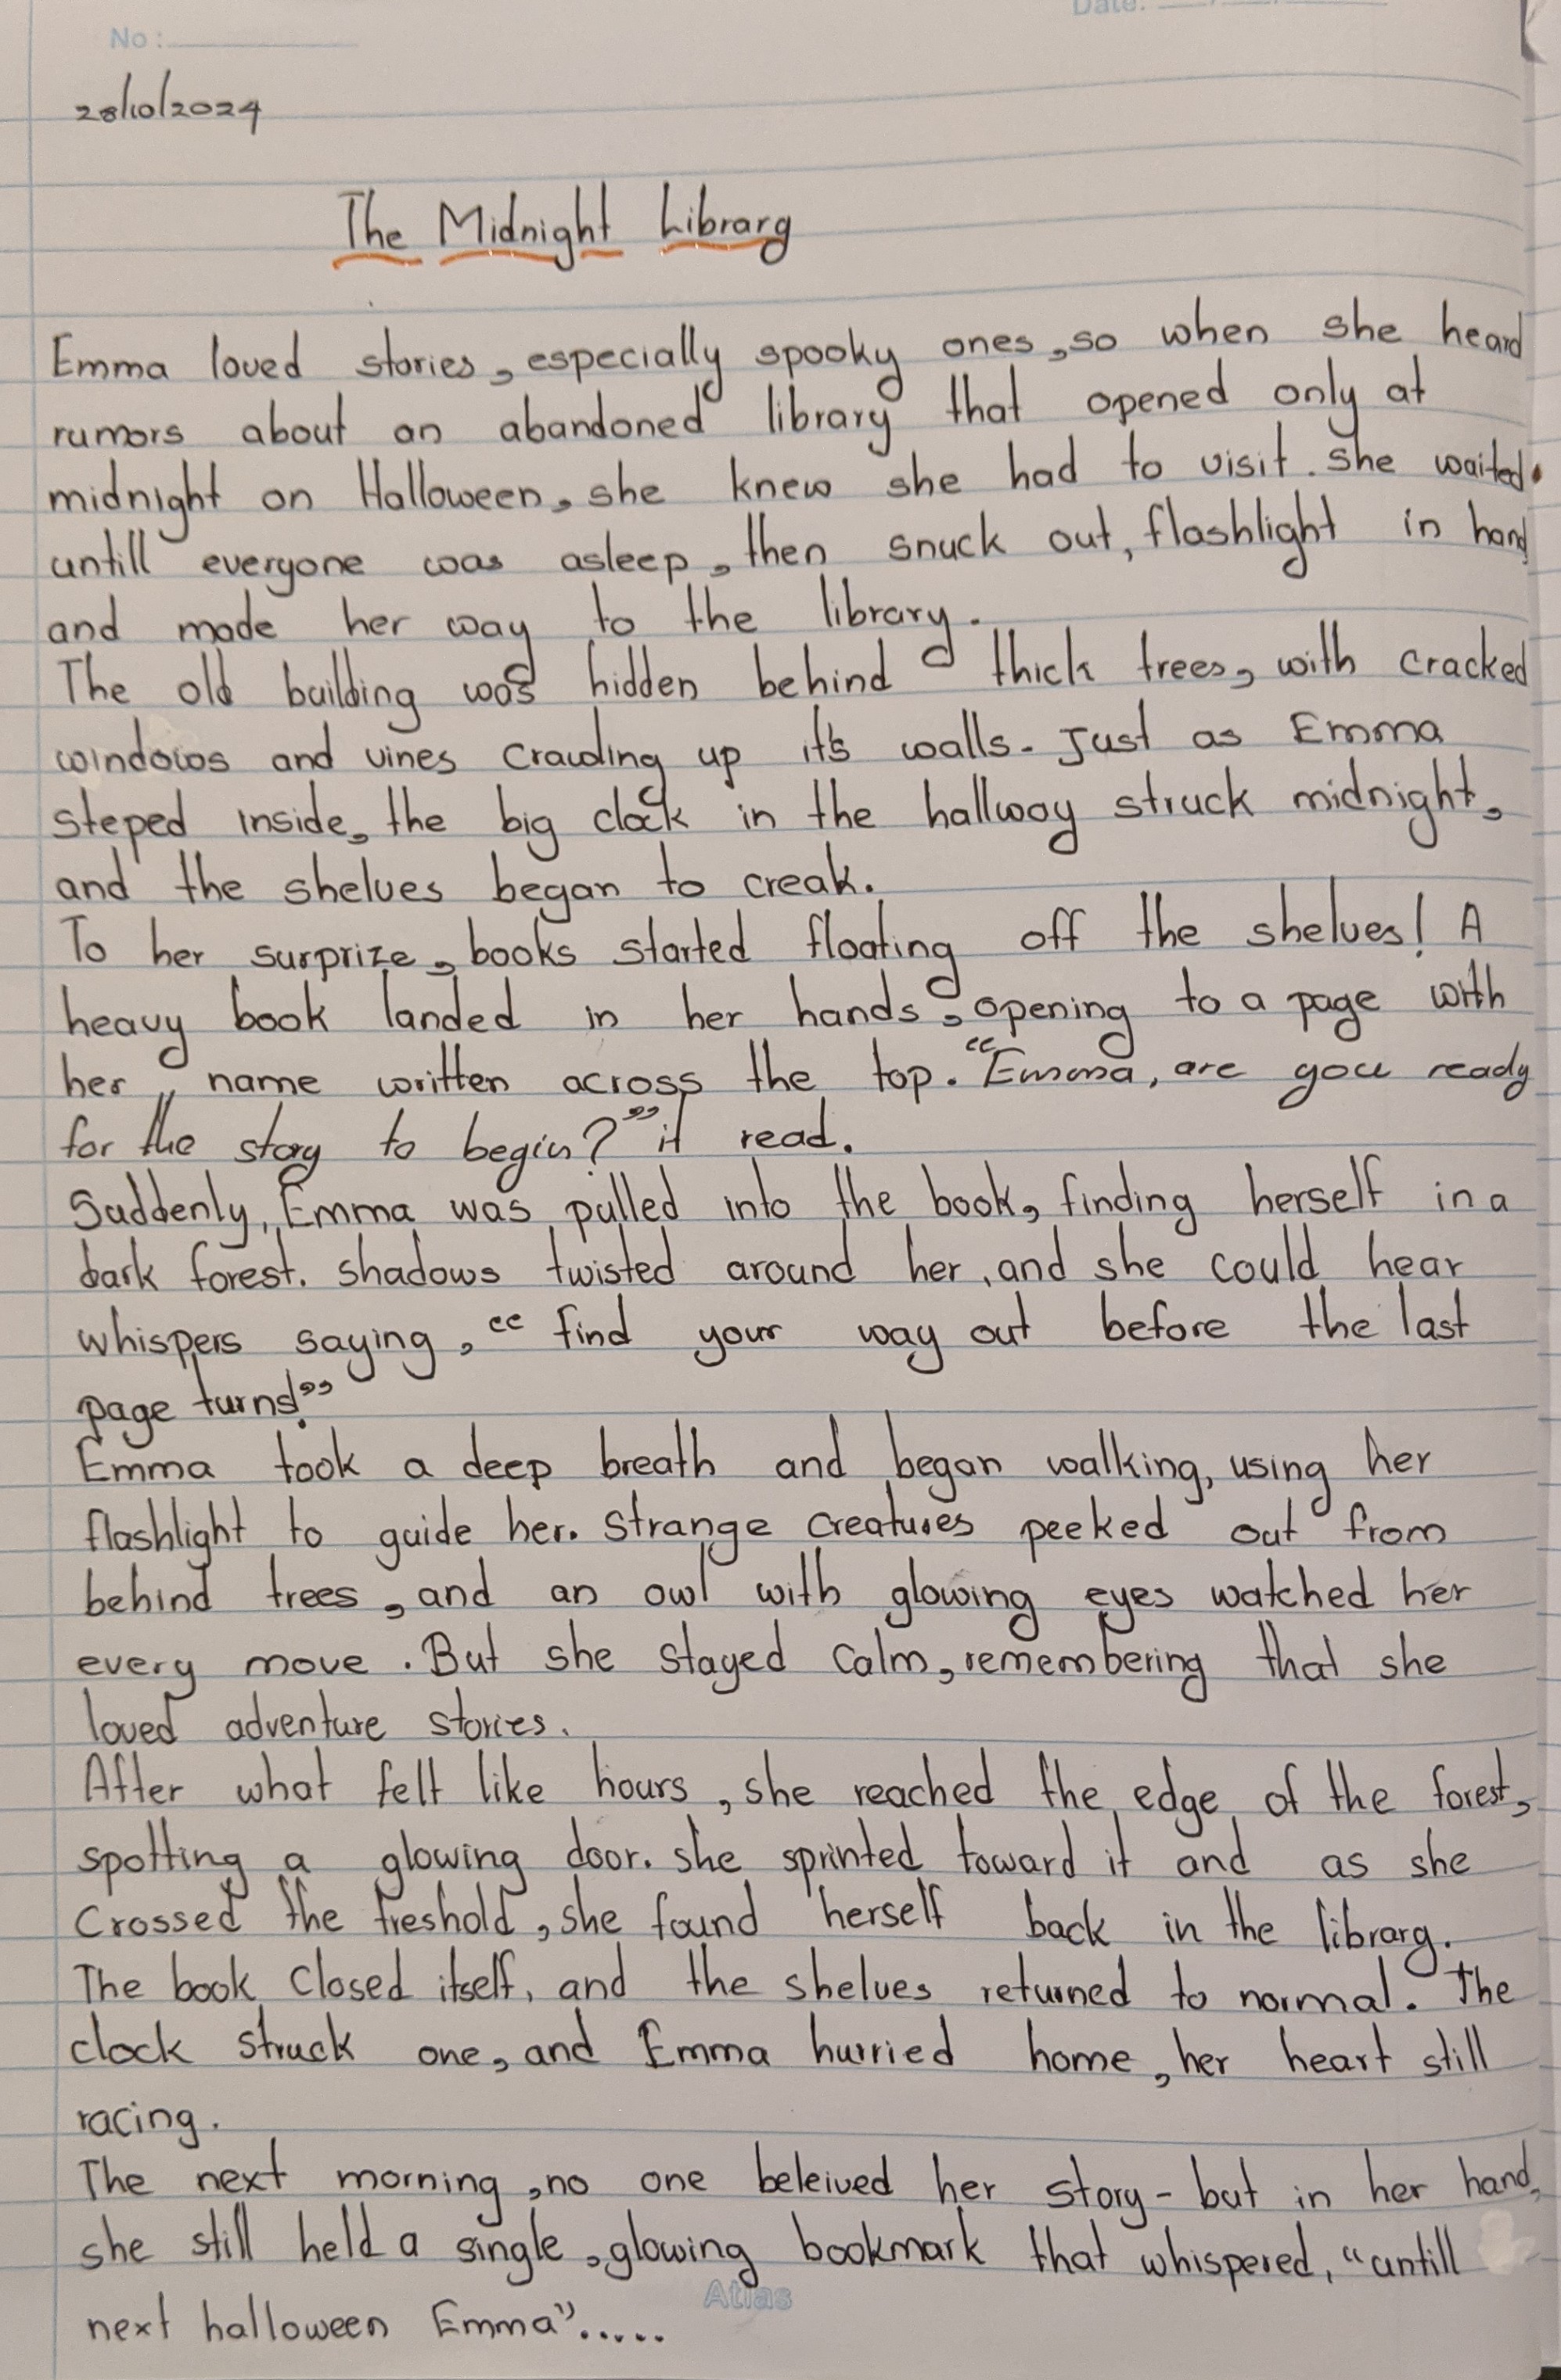 Date:
No:
28/10/2024
The Midnight Library
Emma loved stories, especially spooky ones, so when she heard
rumors about an abandoned library that opened only at
midnight on Halloween, she knew she had to visit. She waited
untill everyone was asleep, then snuck out, flashlight in hand
and made her way to the library.
The old building was hidden behind thick trees, with cracked
windows and vines crawling up it's walls. Just as Emma
steped inside, the big clock in the hallway struck midnight,
and the shelves began to creak.
To her surprize, books started floating off the shelves! A
heavy book landed in her hands, opening to a page with
her name written across the top. "Emma, are you ready
for the story to begin?" it read.
Suddenly, Emma was pulled into the book, finding herself in a
dark forest. shadows twisted around her, and she could hear
whispers saying, "find your way out before the last
page turns!"
Emma took a deep breath and began walking, using her
flashlight to guide her. Strange creatures peeked out from
behind trees, and an owl with glowing eyes watched her
every move. But she stayed calm, remembering that she
loved adventure stories.
After what felt like hours, she reached the edge of the forest,
spotting a glowing door. she sprinted toward it and as she
crossed the treshold, she found herself back in the library.
The book closed itself, and the shelves returned to normal. The
clock struck one, and Emma hurried home, her heart still
racing.
The next morning, no one beleived her story - but in her hand,
she still held a single, glowing bookmark that whispered, "untill
Atlas
next halloween Emma".....